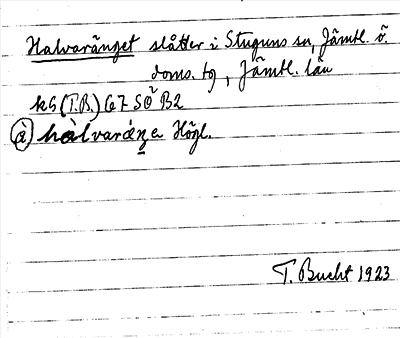 Halvaränget slåtter i Stuguns sn, Jämtl. ö.
doms. tg, Jämtl. län
kS (T.B.) 67 SÖ B2
a) hàlvaráŋe Högl.
T. Bucht 1923